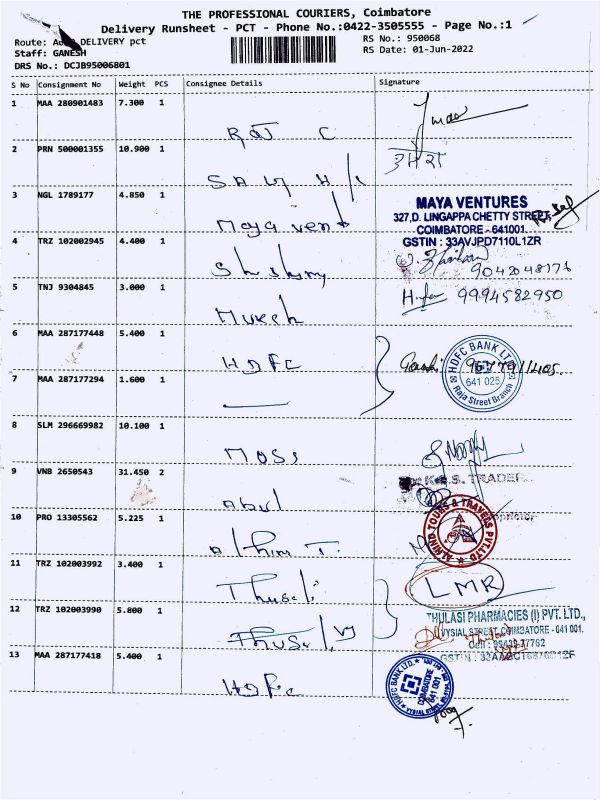 THE PROFESSIONAL COURIERS, Coimbatore
Delivery Runsheet - PCT - Phone No.:0422-3505555 - Page No.:1
Route: DELIVERY pct
RS No.: 950068
Staff: GANESH
RS Date: 01-Jun-2022
DRS No.: DCJB95006801
S No Consignment No Weight PCS Consignee Details Signature
1 MAA 280901483 7.300 1
Raj C
2 PRN 500001355 10.900 1
3 NGL 1789177 4.850 1
Maya vent
MAYA VENTURES
327,D. LINGAPPA CHETTY STREET,
COIMBATORE - 641001.
GSTIN : 33AVJPD7110L1ZR
4 TRZ 102002945 4.400 1
9042048176
5 TNJ 9304845 3.000 1
Mukesh
9994582950
6 MAA 287177448 5.400 1
HDFC
HDFC BANK LTD
641 025
Raja Street Branch
7 MAA 287177294 1.600 1
8 SLM 296669982 10.100 1
Moss
9 VNB 2650543 31.450 2
Abul
K.G.S. TRADER
10 PRO 13305562 5.225 1
Alhim T.
ALHIND TOURS & TRAVELS PVT LTD
11 TRZ 102003992 3.400 1
Thuseli
LMR
12 TRZ 102003990 5.800 1
THULASI PHARMACIES (I) PVT. LTD.,
VYSIAL STREET, COIMBATORE - 641 001.
13 MAA 287177418 5.400 1
HDFC
HDFC BANK LTD.
COIMBATORE
641 001
VYSIAL STREET